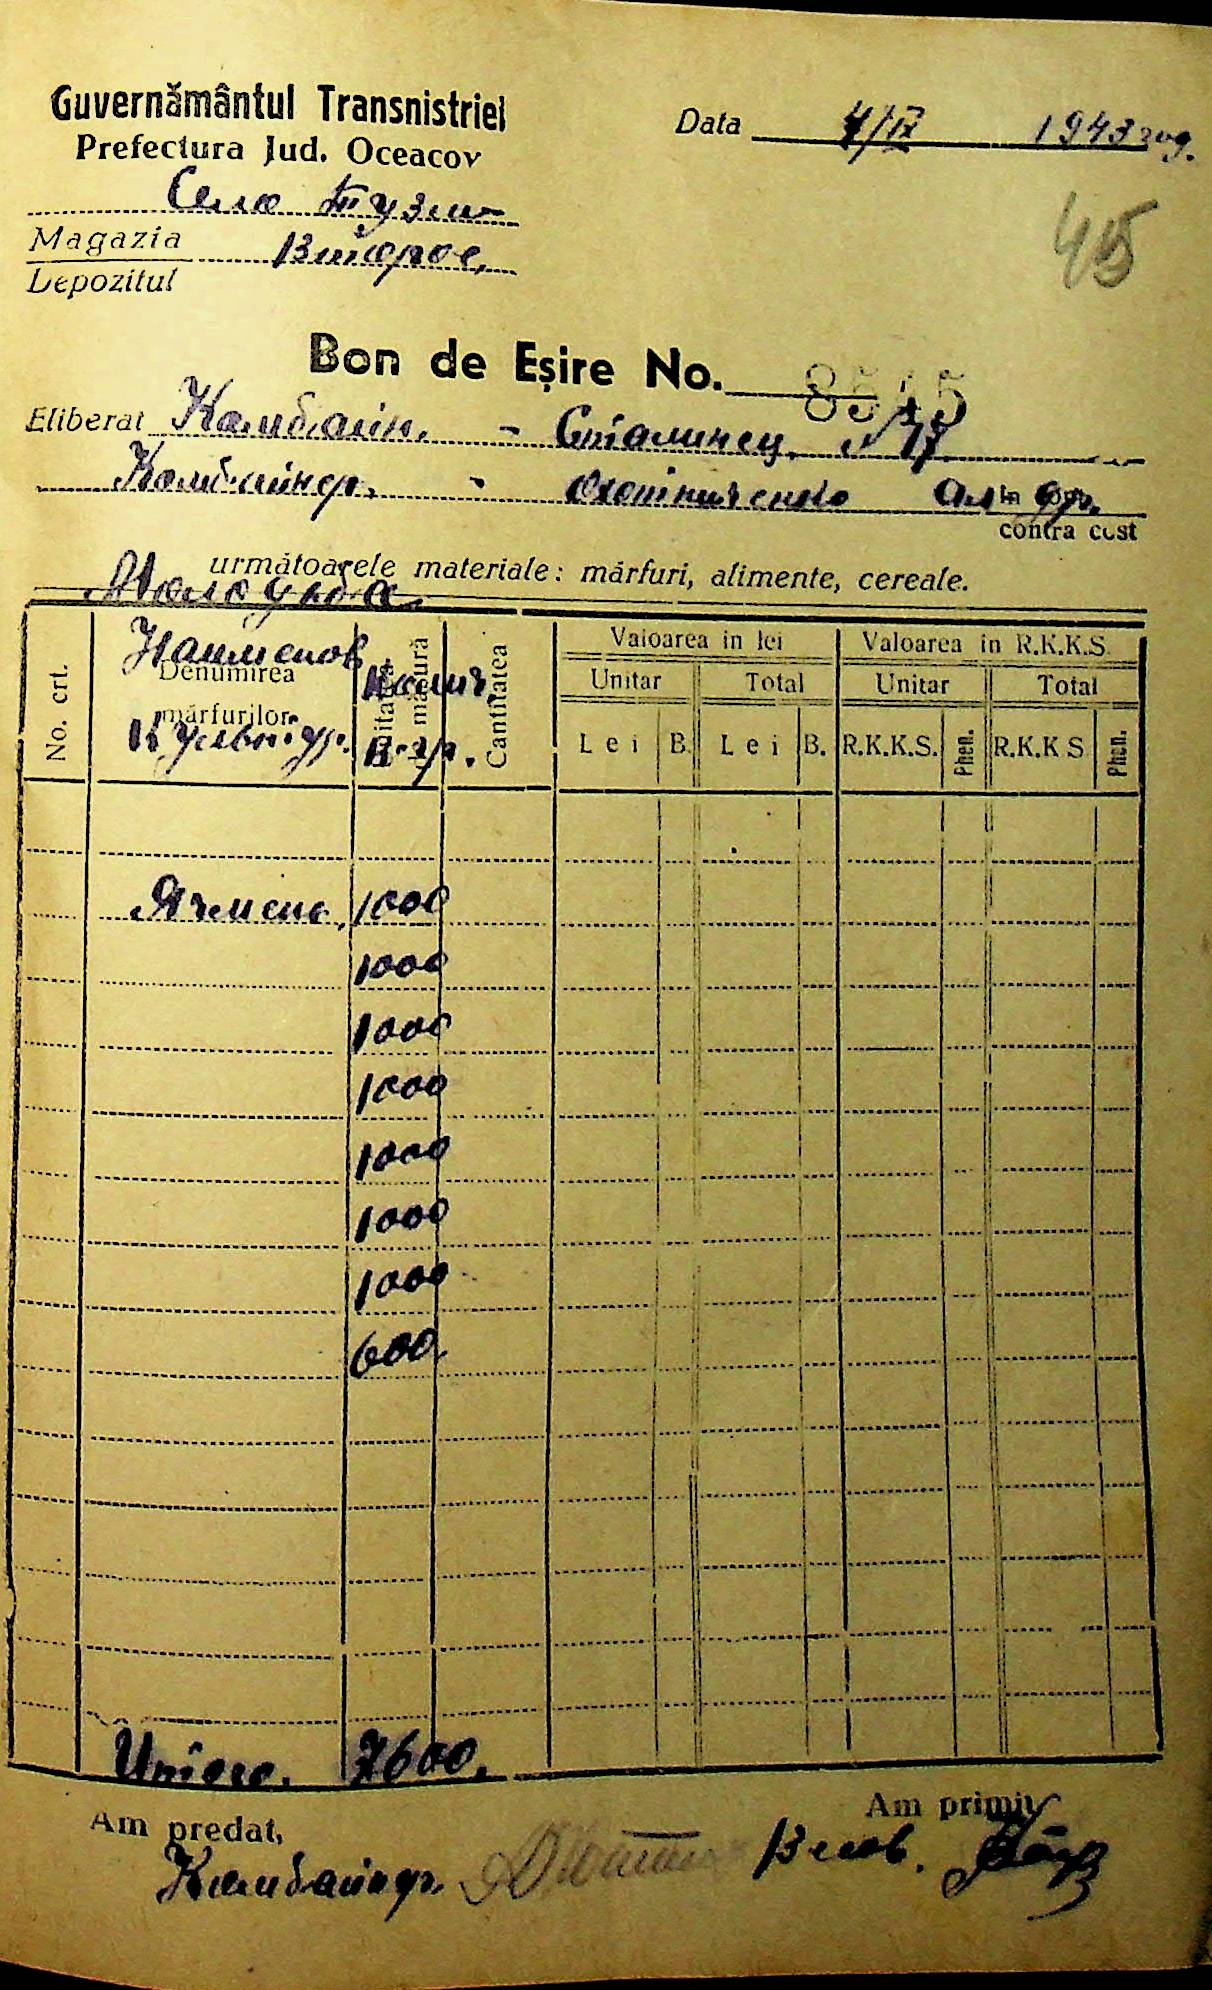 Guvernământul Transnistriei
Prefectura Jud. Oceacov
Data 4/IX 1943 год.
Село Тузли
Magazia Второе
Depozitul
45
Bon de Eşire No. 8545
Eliberat Комбайн. - Сталинец. №17
Комбайнер. - Охотниченко
în cont
contra cost
următoarele materiale: mărfuri, alimente, cereale.
Молодьба
No. crt.
Denumirea mărfurilor
Наименов Культур.
Unitatea de măsură
Колич. К-гр.
Cantitatea
Valoarea in lei
Valoarea in R.K.K.S.
Unitar Total Unitar Total
Lei B. Lei B. R.K.K.S. Phen. R.K.K.S Phen.
Ячмень. 1000
1000
1000
1000
1000
1000
1000
600
Итого. 7600.
Am predat, Am primit
Комбайнер. Весов.